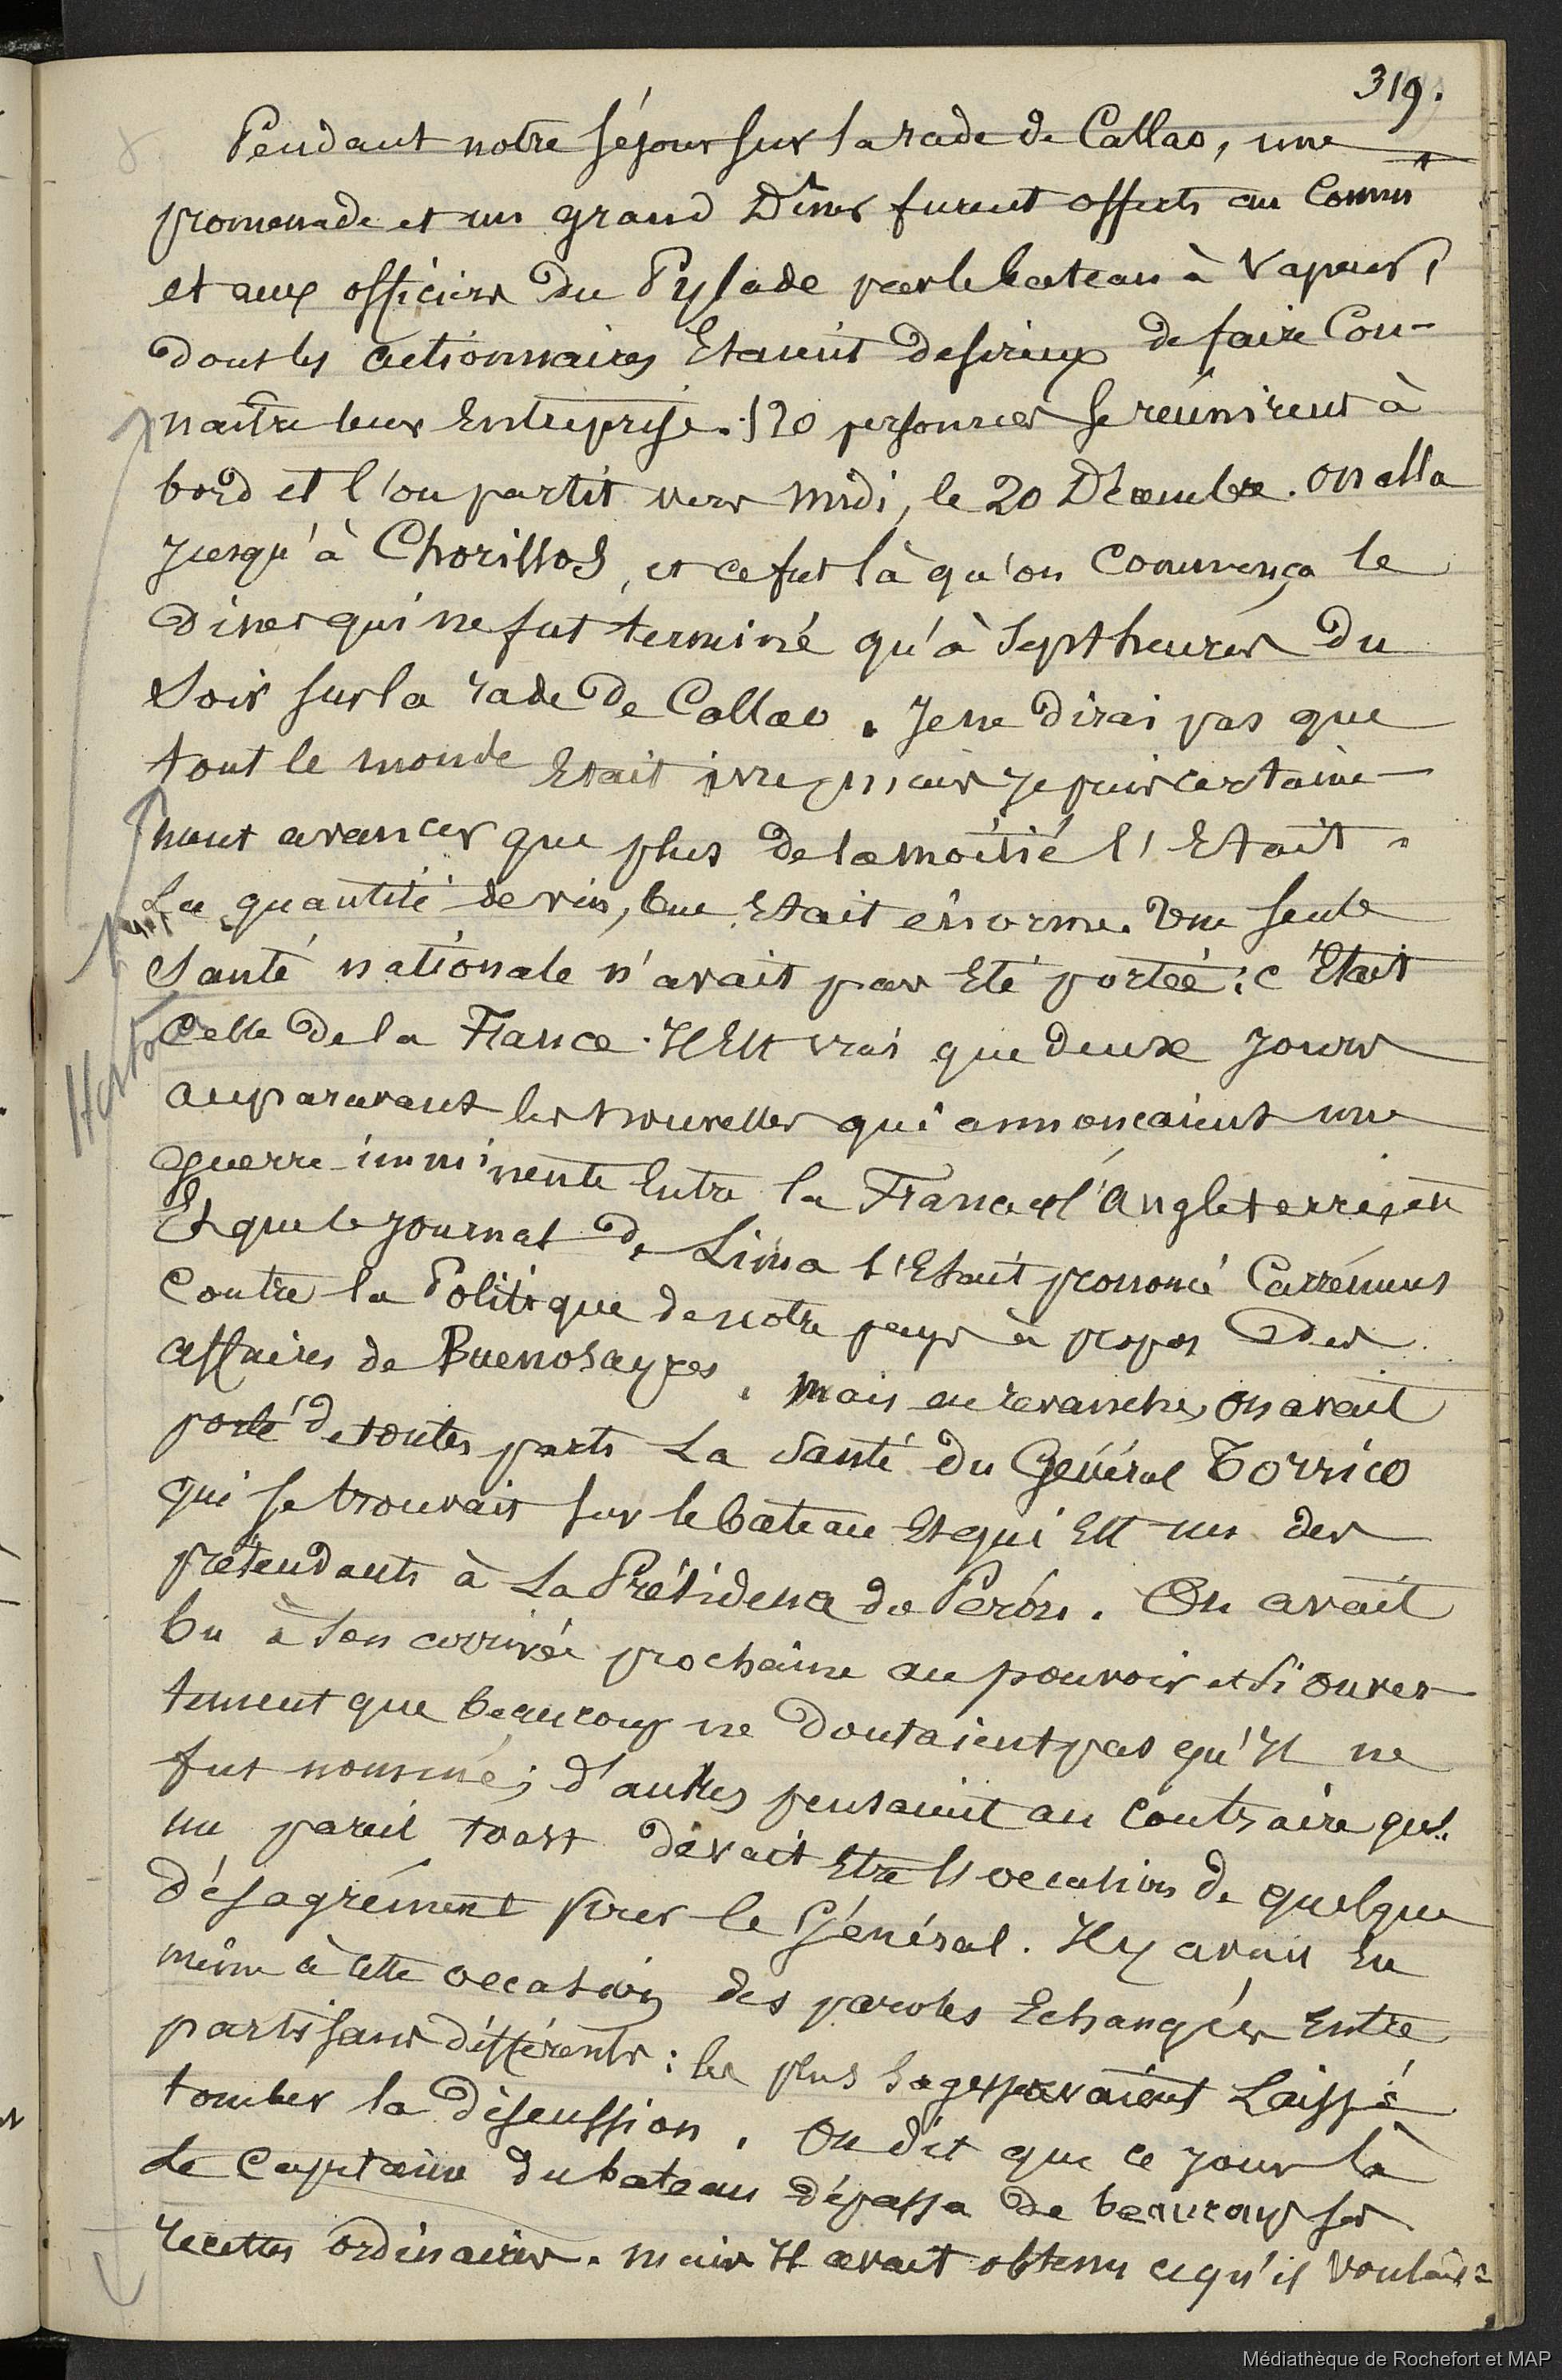 319.
Pendant notre séjour sur la rade de Callao, une
promenade et un grand Dîner furent offerts au Commt
et aux officiers du Pylade par le bateau à Vapeur,
dont les actionnaires Etaient desireux de faire Con-
naître leur Entreprise. 120 personnes se réunirent à
bord et l'on partit vers midi, le 20 Décembre. on alla
jusqu'à Chorillos, et ce fut là qu'on Commença le
diner qui ne fut terminé qu'à Sept heures du
Soir sur la rade de Callao. Je ne dirai pas que
tout le monde Etait ivre, mais je puis certaine-
ment avancer que plus de la moitié l'Etait.
La quantité de vin, bue Etait énorme. Une seule
Santé nationale n'avait pas Eté portée : c'Etait
Celle de la France. Il Est vrai que deux jours
auparavant les nouvelles qui annonçaient une
guerre imminente Entre la France et l'Angleterre
Et que le journal de Lima s'Etait prononcé Carrément
Contre la Politique de notre pays à propos des
affaires de Buenosayres. Mais en revanche, on avait
porté de toutes parts La Santé du Général Torrico
qui se trouvait sur le bateau Et qui Est un des
prétendants à La Présidence du Pérou. On avait
bu à son arrivée prochaine au pouvoir et si ouver-
tement que beaucoup ne doutaient pas qu'Il ne
fut nommé; d'autres pensaient au Contraire qu'
un pareil toast devait Etre l'occasion de quelque
désagrément pour le Général. Il y avait Eu
même à cette occasion des paroles Echangées Entre
partisans différents : les plus sages avaient Laissé
tomber la discussion. On dit que ce jour là
Le Capitaine du bateau dépassa de beaucoup ses
recettes ordinaires. mais Il avait obtenu ce qu'il voulait :
Médiathèque de Rochefort et MAP